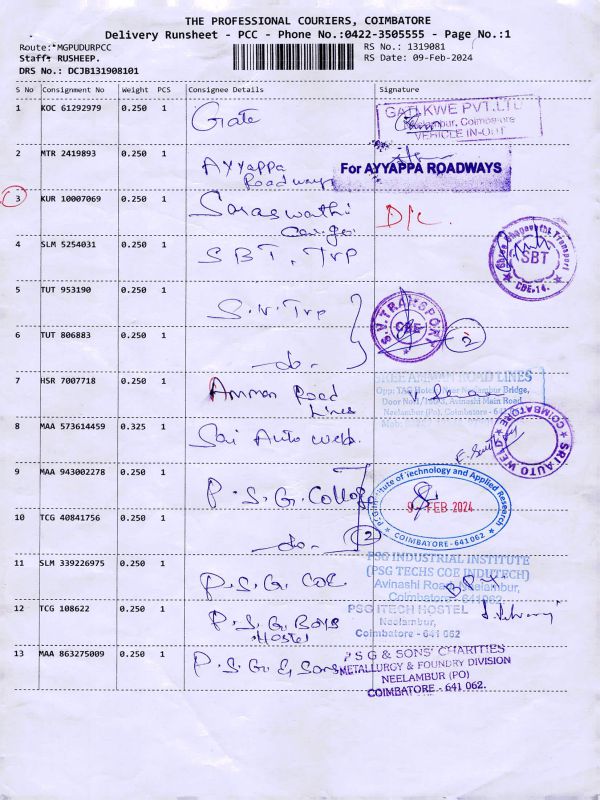 THE PROFESSIONAL COURIERS, COIMBATORE
Delivery Runsheet - PCC - Phone No.:0422-3505555 - Page No.:1
Route:*MGPUDURPCC
RS No.: 1319081
Staff: RUSHEEP.
RS Date: 09-Feb-2024
DRS No.: DCJB131908101
S No Consignment No Weight PCS Consignee Details Signature
1 KOC 61292979 0.250 1 Gate
GATI KWE PVT.LTD
Neelambur, Coimbatore
VEHICLE IN-OUT
2 MTR 2419893 0.250 1 Ayyappa
Roadways
For AYYAPPA ROADWAYS
3 KUR 10007069 0.250 1 Saraswathi
D/C.
4 SLM 5254031 0.250 1 SBT. Trp
Shree Bhagavathi Transport
SBT
CBE-14.
5 TUT 953190 0.250 1 S.V. Trp
S.V.TRANSPORT
CBE
2
6 TUT 806883 0.250 1 -do-
7 HSR 7007718 0.250 1 Amman Road
Lines
SREE AMMAN ROAD LINES
Opp: TAC Hotel, Near Neelambur Bridge,
Avinashi Main Road,
Neelambur (Po), Coimbatore
8 MAA 573614459 0.325 1 Sai Auto weld.
SRI AUTO WELD
COIMBATORE
9 MAA 943002278 0.250 1 P.S.G. College
P.S.G. Institute of Technology and Applied Research
9 FEB 2024
COIMBATORE - 641 062
10 TCG 40841756 0.250 1 -do-
2
11 SLM 339226975 0.250 1 P.S.G. COE
PSG INDUSTRIAL INSTITUTE
(PSG TECHS COE INDUTECH)
Avinashi Road, Neelambur,
Coimbatore - 641062
12 TCG 108622 0.250 1 P.S.G. Boys
Hostel
PSG ITECH HOSTEL
Neelambur,
Coimbatore - 641 062
13 MAA 863275009 0.250 1 P.S.G. & Sons
P S G & SONS' CHARITIES
METALLURGY & FOUNDRY DIVISION
NEELAMBUR (PO)
COIMBATORE - 641 062.